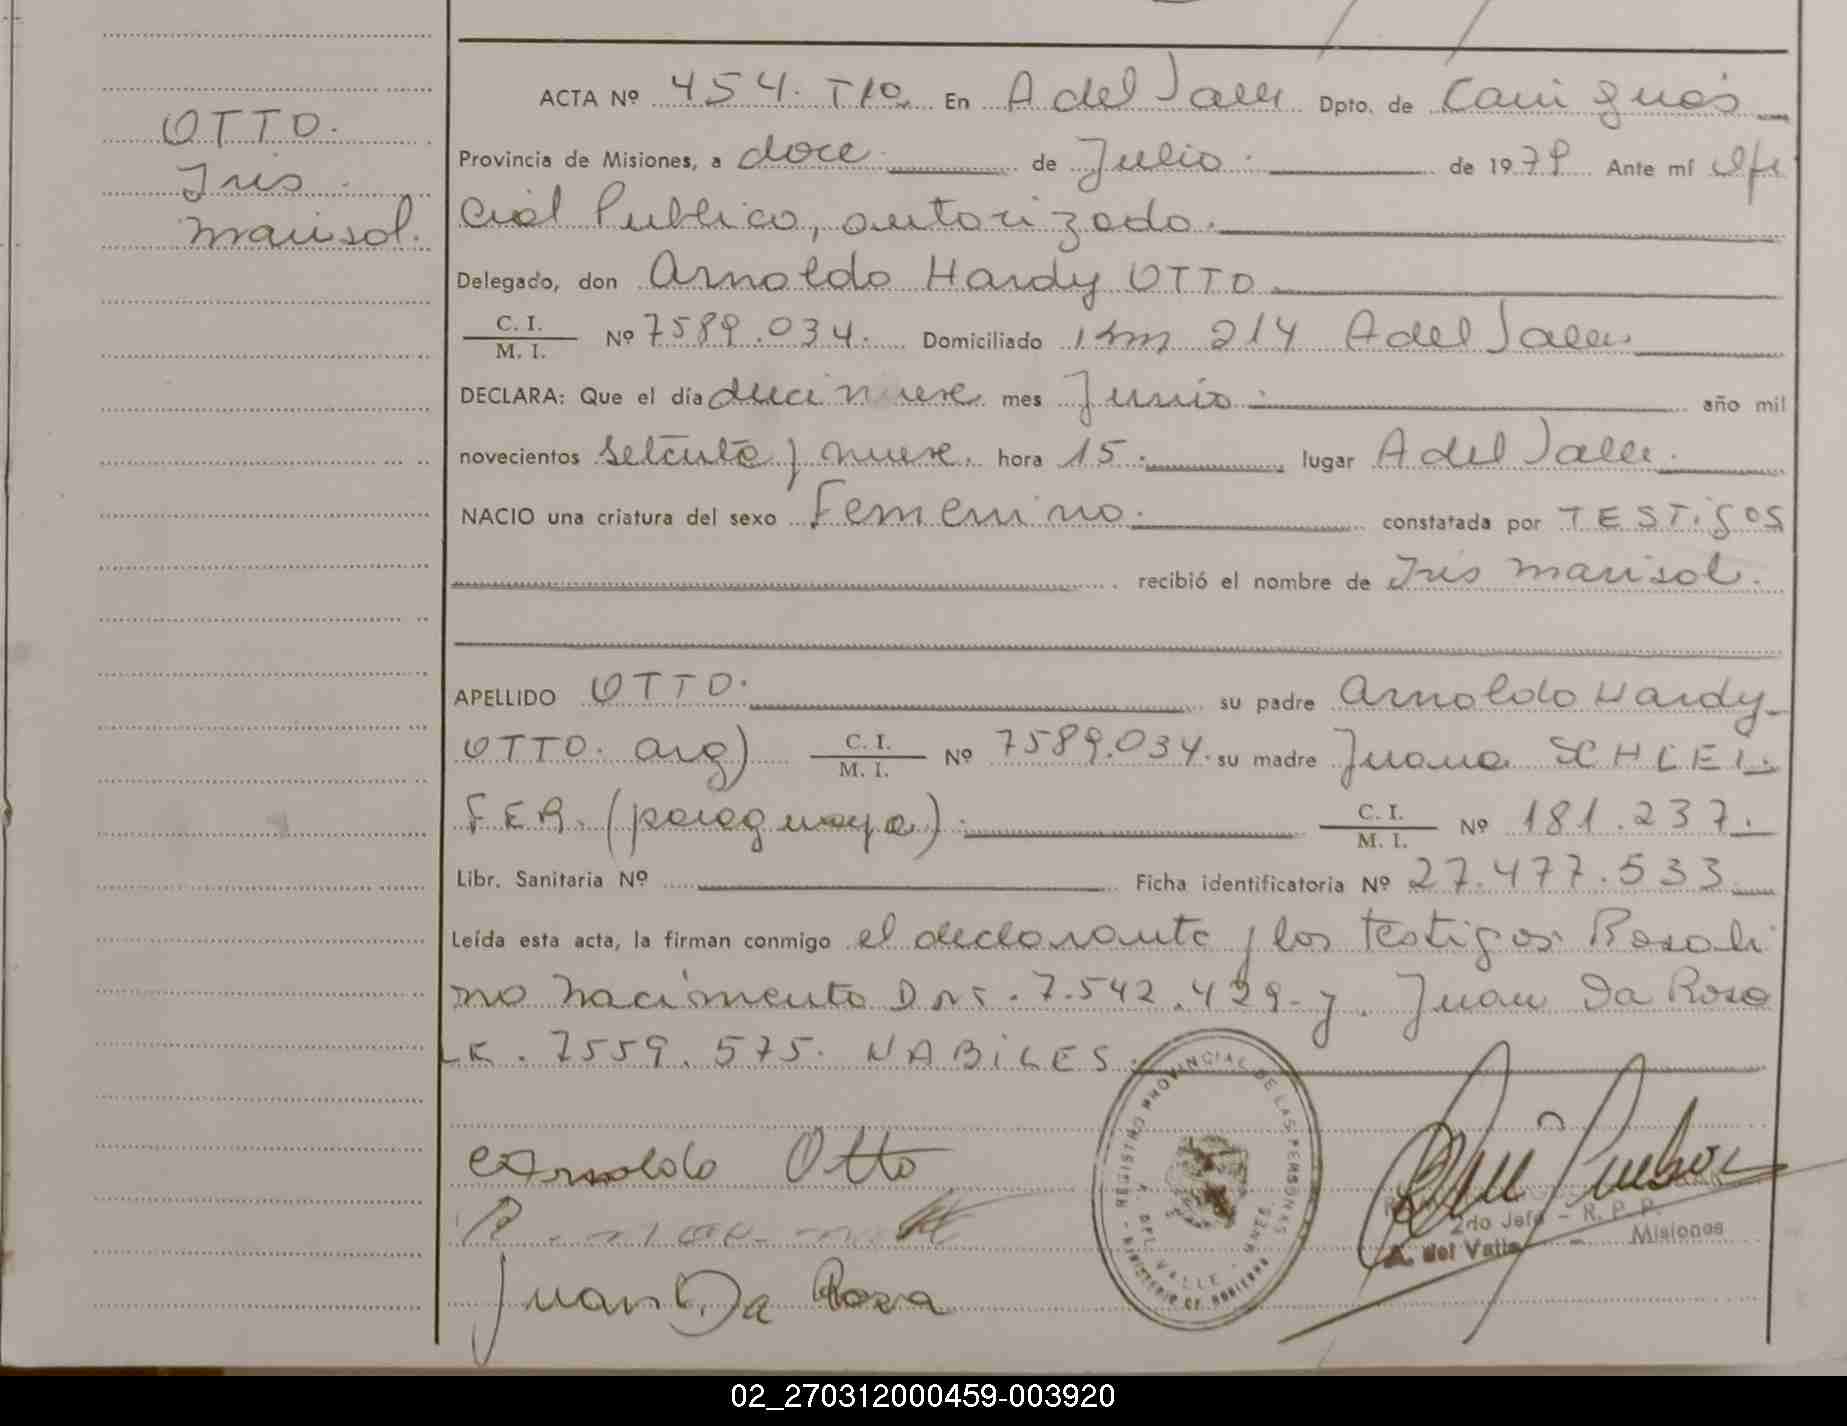 OTTO.
Iris
Marisol.
ACTA Nº 454. Tº En A del Valle Dpto. de Cainguás
Provincia de Misiones, a doce de Julio de 1979 Ante mí Ofi
cial Publico, autorizado.
Delegado, don Arnoldo Hardy OTTO
C. I.
M. I. Nº 7589.034. Domiciliado Km 214 A del Valle
DECLARA: Que el día diecinueve mes Junio año mil
novecientos setenta y nueve. hora 15. lugar A del Valle.
NACIO una criatura del sexo Femenino. constatada por TESTiGOS
recibió el nombre de Iris Marisol.
APELLIDO OTTO. su padre Arnoldo Hardy
OTTO. arg) C. I.
M. I. Nº 7589.034. su madre Juana SCHLEI
FER. (paraguaya). C. I.
M. I. Nº 181.237.
Libr. Sanitaria Nº Ficha identificatoria Nº 27.477.533
Leída esta acta, la firman conmigo el declarante y los testigos Rosali
no Nacimento DNI. 7.542.429- y. Juan Da Rosa
LE. 7559.575. HABiLES.
Arnoldo Otto
Juan Da Rosa
REGISTRO PROVINCIAL DE LAS PERSONAS
A. DEL VALLE - MNES.
MINISTERIO DE GOBIERNO
2do Jefe - R. P. P.
A. del Valle - Misiones
02_270312000459-003920